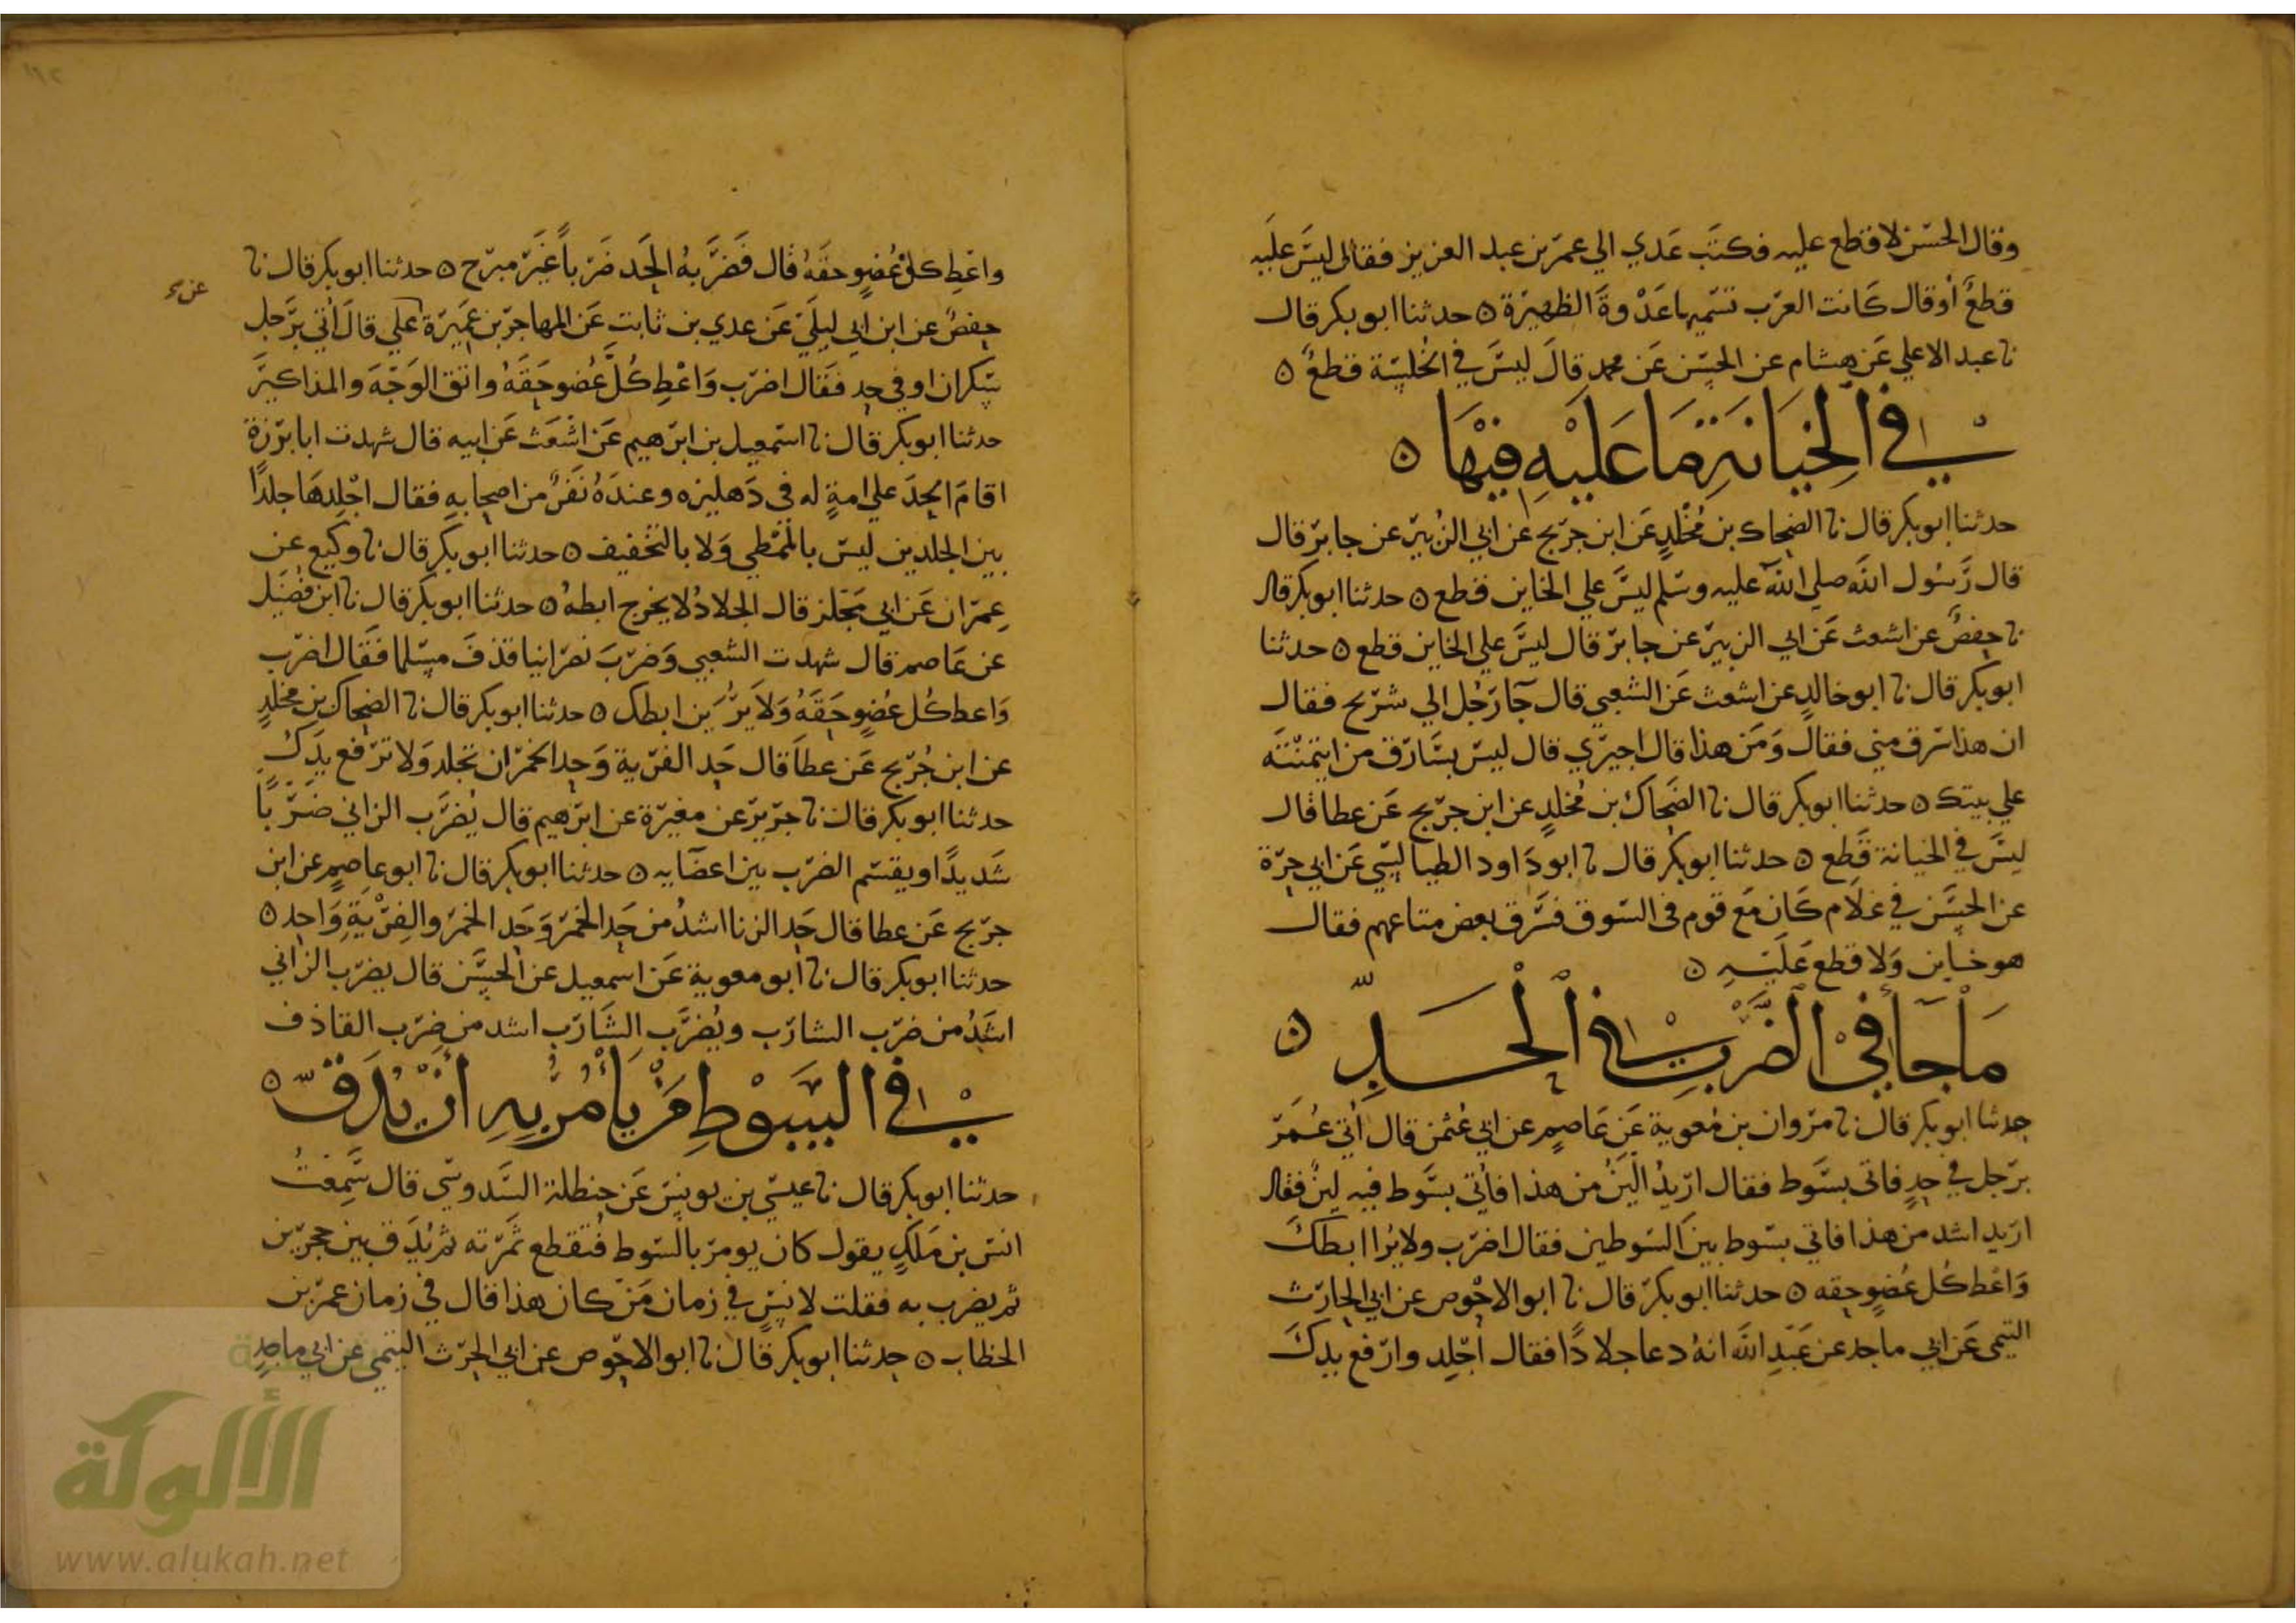 وقال الحسن لا قطع عليه فكتب عدي الي عمر بن عبد العزيز فقال ليس عليه
قطع أو قال كانت العرب تسميها عدوة الظهيرة ٥ حدثنا ابو بكر قال
نا عبد الاعلي عن هشام عن الحسن عن محمد قال ليس في الخلسة قطع ٥
في الخيانة ما عليه فيها ٥
حدثنا ابو بكر قال نا الضحاك بن مخلد عن ابن جريج عن ابي الزبير عن جابر قال
قال رسول الله صلي الله عليه وسلم ليس علي الخاين قطع ٥ حدثنا ابو بكر قال
نا حفص عن اشعث عن ابي الزبير عن جابر قال ليس علي الخاين قطع ٥ حدثنا
ابو بكر قال نا ابو خالد عن اشعث عن الشعبي قال جا رجل الي شريح فقال
ان هذا سرق مني فقال ومن هذا قال اجيري قال ليس بسارق من ايتمنته
علي بيتك ٥ حدثنا ابو بكر قال نا الضحاك بن مخلد عن ابن جريج عن عطا قال
ليس في الخيانة قطع ٥ حدثنا ابو بكر قال نا ابو داود الطيالسي عن ابي حرة
عن الحسن في غلام كان مع قوم في السوق فسرق بعض متاعهم فقال
هو خاين ولا قطع عليه ٥
ما جا في الضرب في الحد ٥
حدثنا ابو بكر قال نا مروان بن معوية عن عاصم عن ابي عثمن قال أتي عمر
برجل في حد فاتي بسوط فقال اريد ألين من هذا فأتي بسوط فيه لين فقال
اريد اشد من هذا فاتي بسوط بين السوطين فقال اضرب ولا يرا ابطك
واعط كل عضو حقه ٥ حدثنا ابو بكر قال نا ابو الاحوص عن ابي الحارث
التيمي عن ابي ماجد عن عبد الله انه دعا جلادا فقال اجلد وارفع يدك
واعط كل عضو حقه قال فضربه الحد ضربا غير مبرح ٥ حدثنا ابو بكر قال نا
عن
حفص عن ابن ابي ليلي عن عدي بن ثابت عن المهاجر بن عميرة علي قال أتي برجل
سكران او في حد فقال اضرب واعط كل عضو حقه واتق الوجه والمذاكير
حدثنا ابو بكر قال نا اسمعيل بن ابرهيم عن اشعث عن ابيه قال شهدت ابا برزة
اقام الحد علي امة له في دهليزه وعنده نفر من اصحابه فقال اجلدها جلدا
بين الجلدين ليس بالتمطي ولا بالتخفيف ٥ حدثنا ابو بكر قال نا وكيع عن
عمران عن ابي مجلز قال الجلاد لا يخرج ابطه ٥ حدثنا ابو بكر قال نا ابن فضيل
عن عاصم قال شهدت الشعبي وضرب نصرانيا قذف مسلما فقال اضرب
واعط كل عضو حقه ولا يرين ابطك ٥ حدثنا ابو بكر قال نا الضحاك بن مخلد
عن ابن جريج عن عطا قال حد الفرية وحد الخمر ان تجلد ولا ترفع يدك
حدثنا ابو بكر قال نا جرير عن مغيرة عن ابرهيم قال يضرب الزاني ضربا
شديدا ويقسم الضرب بين اعضايه ٥ حدثنا ابو بكر قال نا ابو عاصم عن ابن
جريج عن عطا قال حد الزنا اشد من حد الخمر وحد الخمر والفرية واحد ٥
حدثنا ابو بكر قال نا ابو معوية عن اسمعيل عن الحسن قال يضرب الزاني
اشد من ضرب الشارب ويضرب الشارب اشد من ضرب القاذف
في السوط من يأمر به أن يدق ٥
حدثنا ابو بكر قال نا عيسي بن يونس عن حنظلة السدوسي قال سمعت
انس بن ملك يقول كان يومر بالسوط فتقطع ثمرته ثم يدق بين حجرين
ثم يضرب به فقلت لانس في زمان من كان هذا قال في زمان عمر بن
الخطاب ٥ حدثنا ابو بكر قال نا ابو الاحوص عن ابي الحرث التيمي عن ابي ماجد
الألوكة
www.alukah.net